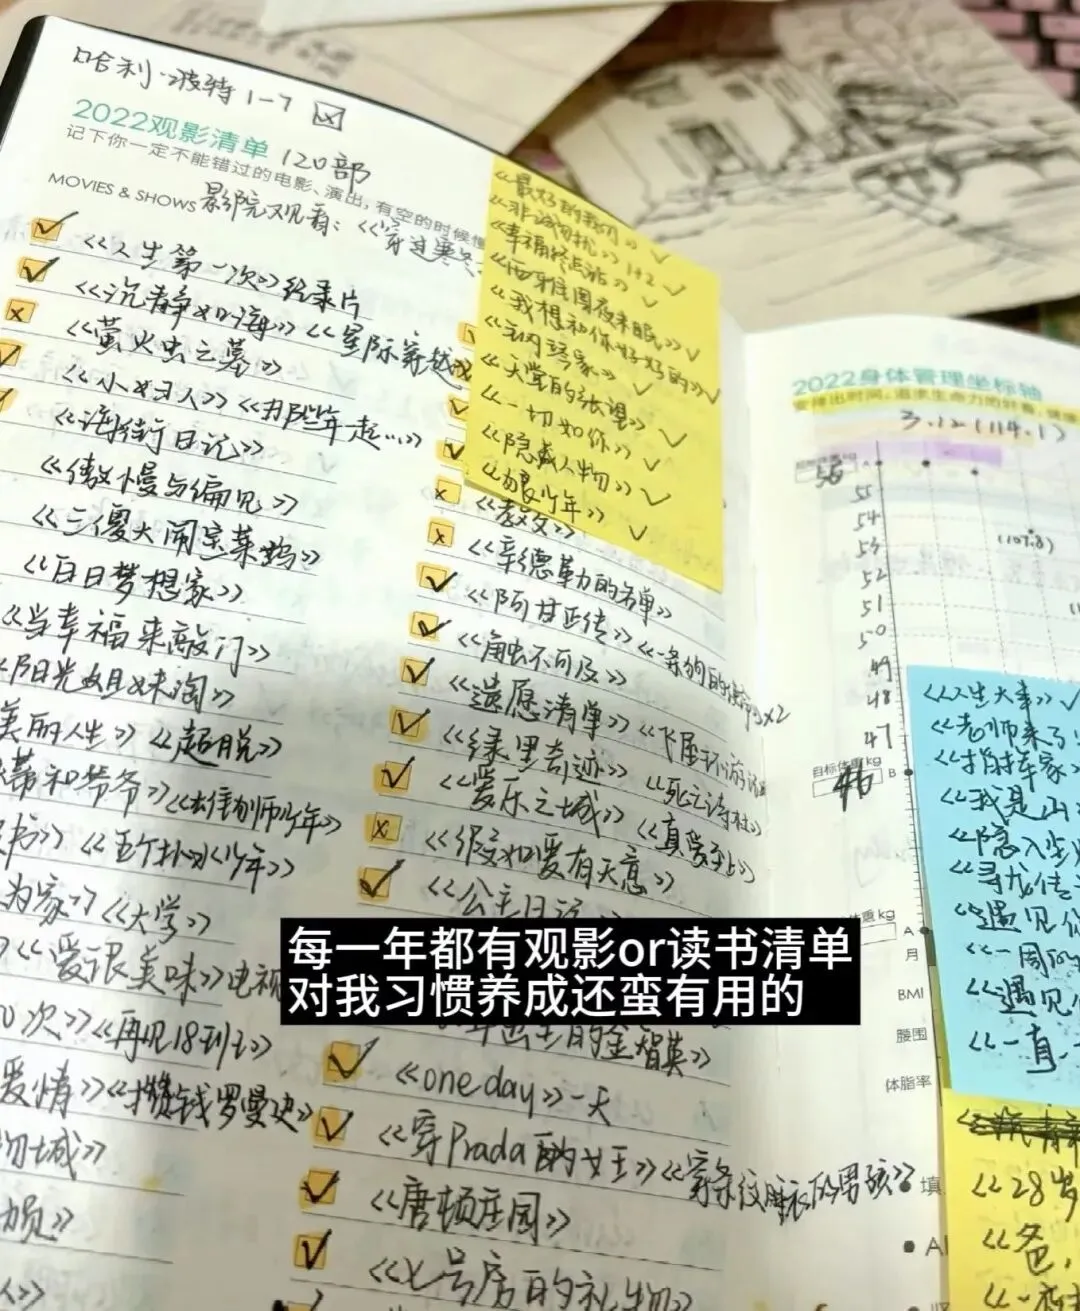 哈利·波特1-7
2022观影清单 120部
记下你一定不能错过的电影、演出，有空的时候
MOVIES & SHOWS 影院观看：《穿过寒冬
《人生第一次》纪录片
《沉静如海》《星际穿越》
《萤火虫之墓》
《小妇人》《那些年一起…》
《海街日记》
《傲慢与偏见》
《三傻大闹宝莱坞》
《白日梦想家》
《当幸福来敲门》
《阳光姐妹淘》
美丽人生》《超脱》
蒂和爷爷》
书》《五个扑水少年》
为家》《大学》
《爱很美味》电视
0次》《再见18班》
爱情》《攒钱罗曼史》
物城》
《最好的我们》
《非诚勿扰》1+2
《幸福终点站》
《西雅图夜未眠》
《我想和你好好的》
《钢琴家》
《天堂的张望》
《一切如你》
《隐藏人物》
《狼少年》
《教父》
《辛德勒的名单》
《阿甘正传》《一条狗的使命》x2
《触不可及》
《遗愿清单》《飞屋环游记》
《绿里奇迹》《死亡诗社》
《爱乐之城》《真爱至上》
《假如爱有天意》
《公主日记
年出生的金智英》
《one day》一天
《穿Prada的女王》《穿条纹睡衣的男孩》
《唐顿庄园》
《七号房的礼物》
2022身体管理坐标轴
3.12(114.1)
56
55
54
53
(107.8)
52
51
50
49
48
47
目标体重kg
46
B
kg
A
月
BMI
腰围
体脂率
填
《人生大事》
《老师来了！
《我是山
《隐入尘
《寻龙传
《遇见你
《一周的
《遇见
《一直
《28岁
《爸，
每一年都有观影or读书清单
对我习惯养成还蛮有用的